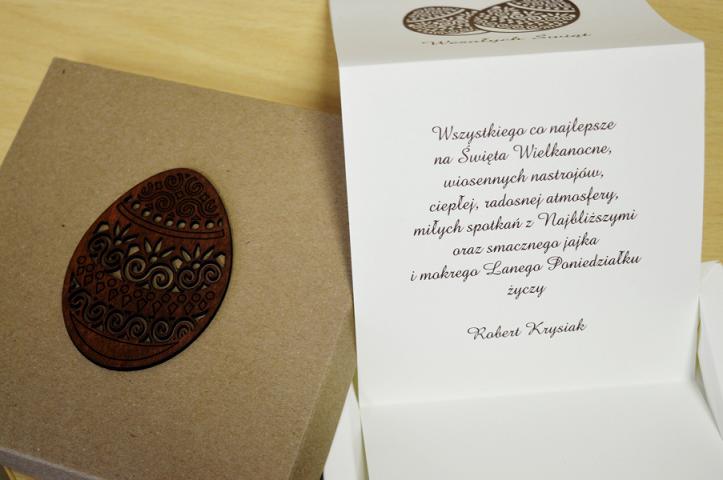 Wesołych Świąt
Wszystkiego co najlepsze
na Święta Wielkanocne,
wiosennych nastrojów,
ciepłej, radosnej atmosfery,
miłych spotkań z Najbliższymi
oraz smacznego jajka
i mokrego Lanego Poniedziałku
życzy
Robert Krysiak